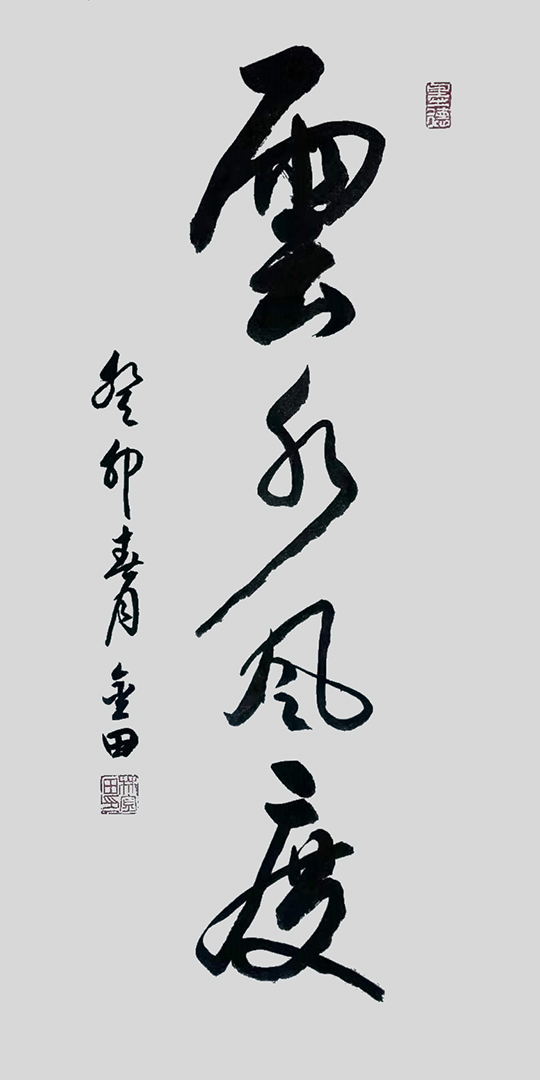 雲水風度
癸卯春月 金田